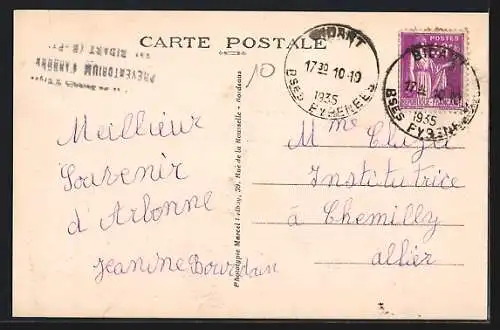 CARTE POSTALE
PREVENTORIUM D'ARBONNE
BIDART (B.-P.)
10
BIDART
17 30 10-10
1935
BSES PYRENEES
POSTES
BIDART
1935
BSES PYRENEES
Meillieur
Souvenir
d'Arbonne
Jeanine Bourdain
Phototypie Marcel Delboy, 39, Rue de la Rousselle - Bordeaux
Mme
Institutrice
à Chemilly
allier